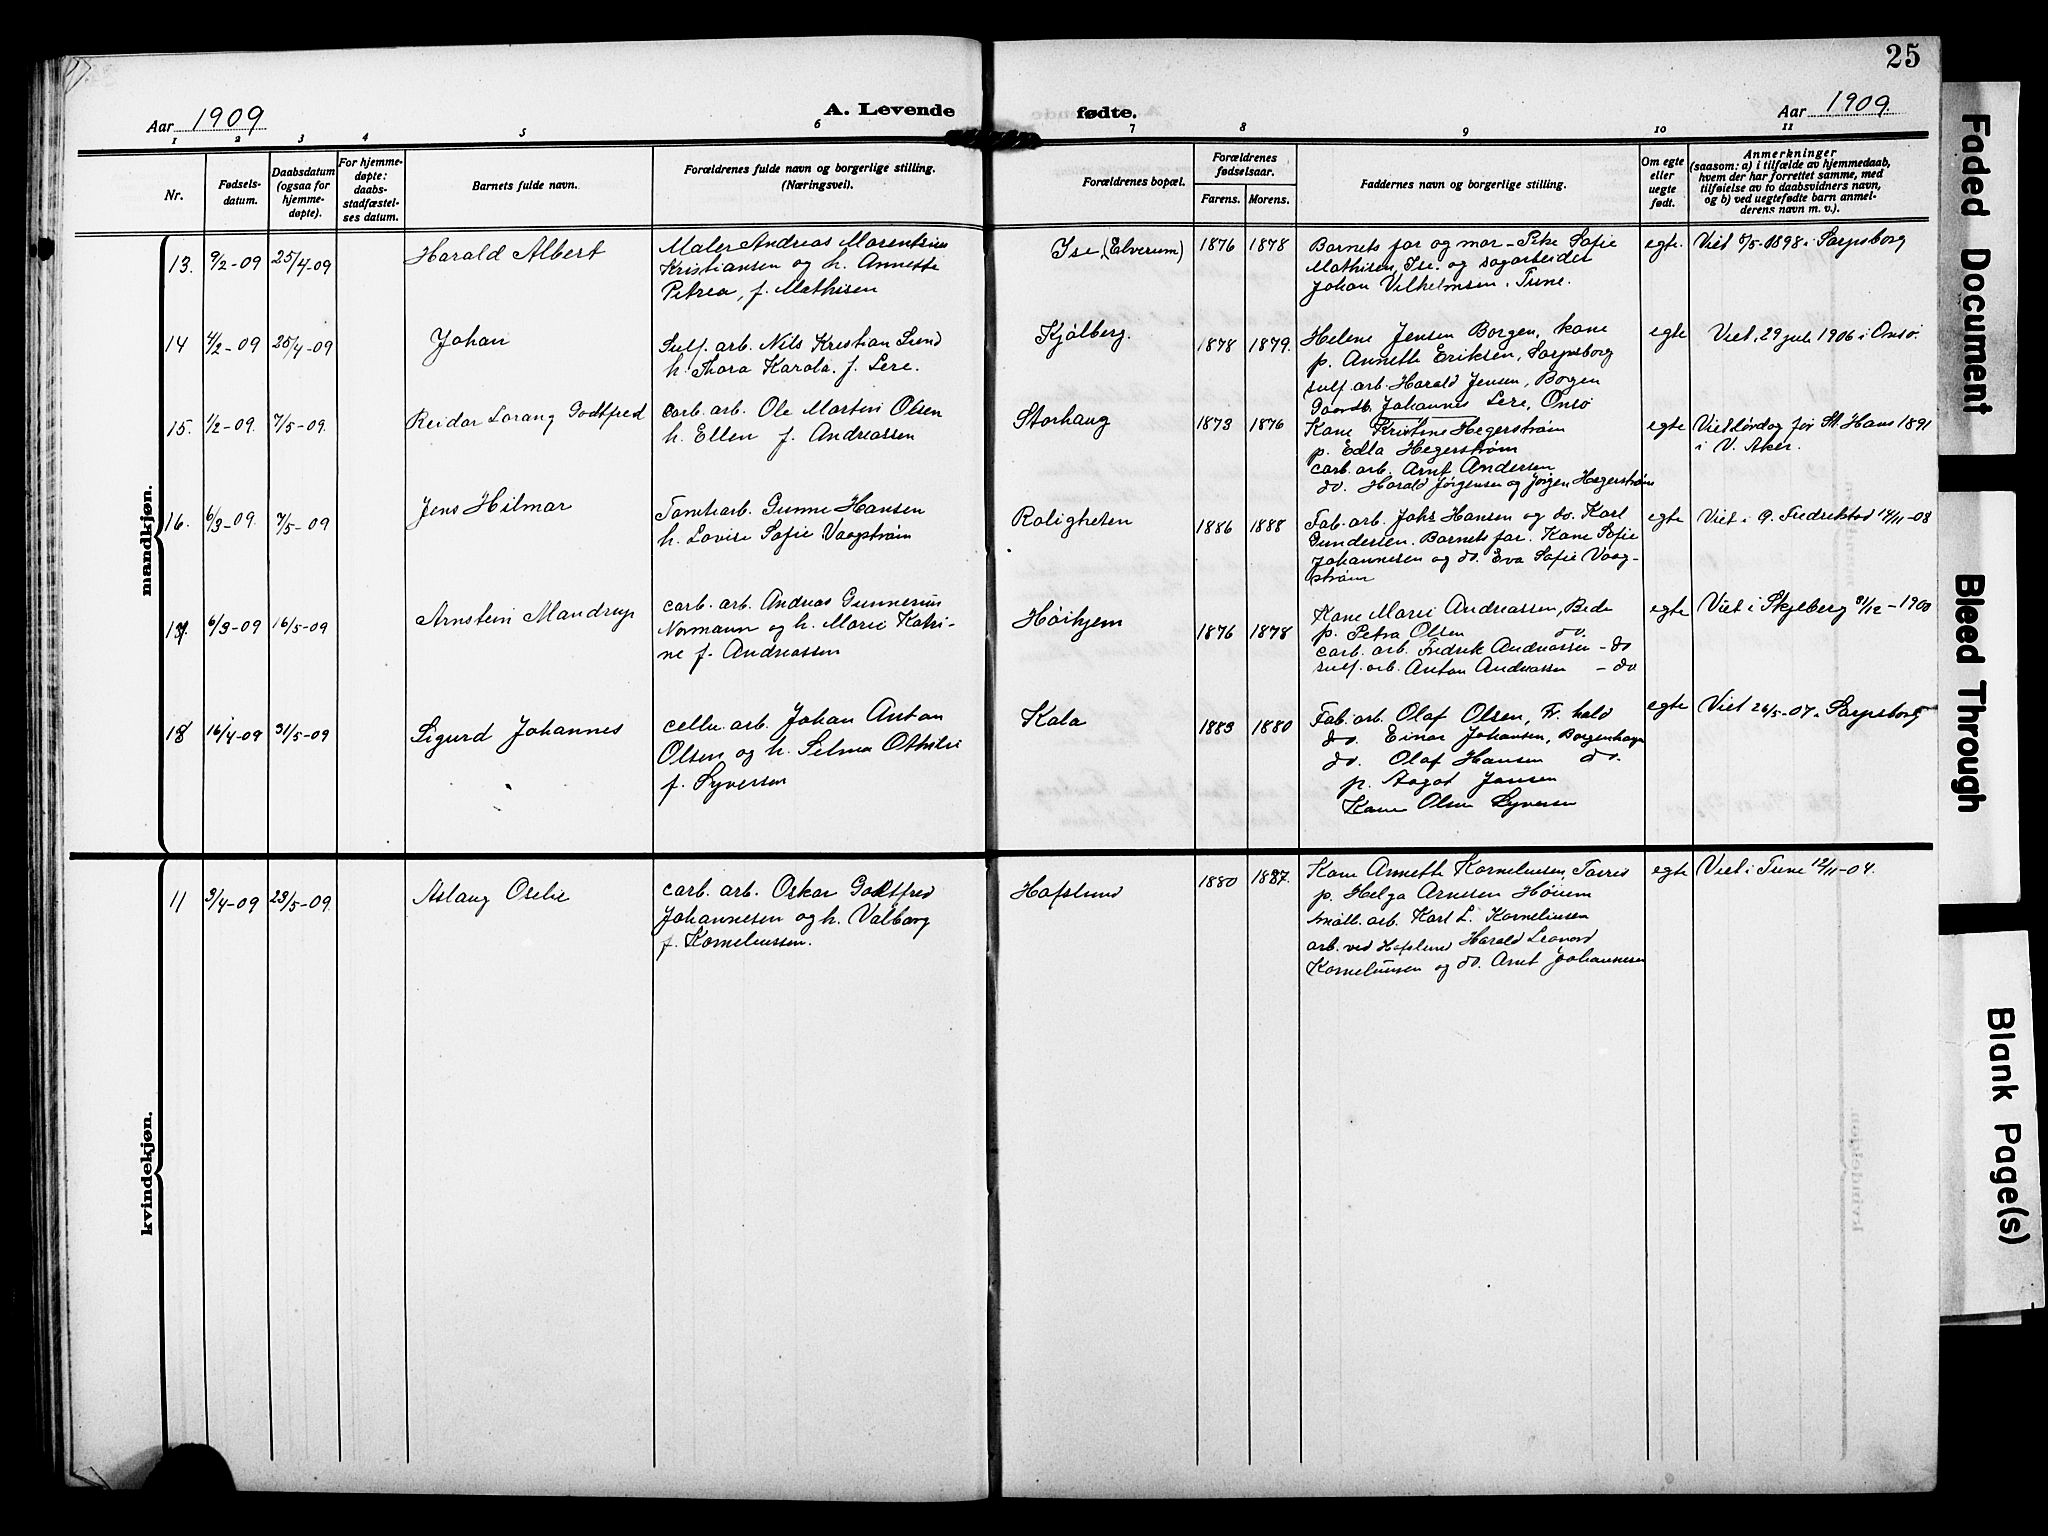 25
Aar 1909
A. Levende
fødte.
Aar 1909.
1 2 3 4 5 6 7 8 9 10 11
Nr.
Fødsels-
datum.
Daabsdatum
(ogsaa for
hjemme-
døpte).
For hjemme-
døpte:
daabs-
stadfæstel-
ses datum.
Barnets fulde navn.
Forældrenes fulde navn og borgerlige stilling.
(Næringsvei).
Forældrenes bopæl.
Forældrenes
fødselsaar.
Farens. Morens.
Faddernes navn og borgerlige stilling.
Om egte
eller
uegte
født.
Anmerkninger
(saasom: a) i tilfælde av hjemmedaab,
hvem der har forrettet samme, med
tilføielse av to daabsvidners navn,
og b) ved uegtefødte barn anmel-
derens navn m. v.).
mandkjøn.
13. 9/2-09 25/4-09 Harald Albert
Maler Andreas Morentsius
Kristiansen og h. Annette
Petrea, f. Mathisen
Ise, (Elverum) 1876 1878
Barnets far og mor - Pike Sofie
Mathisen, Ise. og sagarbeider
Johan Vilhelmsen. Tune.
egte. Viet 8/5-1898 i Sarpsborg
14 4/2-09 25/4-09 Johan
Sulf. arb. Nils Kristian Lund
h. Thora Karola. f. Lere.
Kjølberg. 1878 1879.
Helene Jensen Borgen, kone
p. Anneth Eriksen, Sarpsborg
sulf. arb. Harald Jensen, Borgen
Gaardb. Johannes Lere, Onsø
egte Viet, 29 juli 1906 i Onsø.
15. 1/2-09. 7/5-09. Reidar Lorang Godtfred
carb. arb. Ole Martin Olsen
h. Ellen f. Andreassen
Storhaug 1873 1876
Kone Kristine Hegerstrøm
p. Edla Hegerstrøm
carb. arb. Arnt Andersen
do. Harald Jørgensen og Jørgen Hegerstrøm
egte Viet lørdag før St. Hans 1891
i V. Aker.
16. 6/3-09. 7/5-09 Jens Hilmar
Tomtearb. Gunne Hansen
h. Lovise Sofie Vaagstrøm
Roligheten 1886 1888
Fab. arb. Johs Hansen og do. Karl
Gundersen. Barnets far. Kone Sofie
Johannesen og do. Eva Sofie Vaag-
strøm
egte Viet i G. Fredrikstad 14/11-08
17. 6/3-09 16/5-09 Arnstein Mandrup
carb. arb. Andreas Gunnerius
Normann og h. Marie Katri-
ne f. Andreassen
Høihjem 1876 1878
Kone Marie Andreassen, Bede
p. Petra Olsen do.
carb. arb. Fredrik Andreassen - do
sulf. arb. Anton Andreassen - do
egte Viet i Skjeberg 31/12-1900
18 16/4-09 31/5-09 Sigurd Johannes
cellu. arb. Johan Anton
Olsen og h. Selma Othilie
f. Syversen
Kala 1883 1880
Fab. arb. Olaf Olsen, Fr. hald
do. Einar Johansen, Borgenhaugen
do. Olaf Hansen do.
p. Aagot Jansen
Kone Olsen Syversen
egte Viet 26/5-07 i Sarpsborg
kvindekjøn.
11 3/4-09 23/5-09. Aslaug Oselie
carb. arb. Oskar Godtfred
Johannesen og h. Valborg
f. Korneliussen.
Hafslund 1880 1887.
Kone Anneth Korneliusen,
p. Helga Arnesen Høiem
Smält. arb. Karl L. Korneliusen
arb. ved Hafslund Harald Leonard
Korneliusen og do. Arnt Johannesen
egte Viet i Tune 12/11-04.
Faded Document
Bleed Through
Blank Page(s)